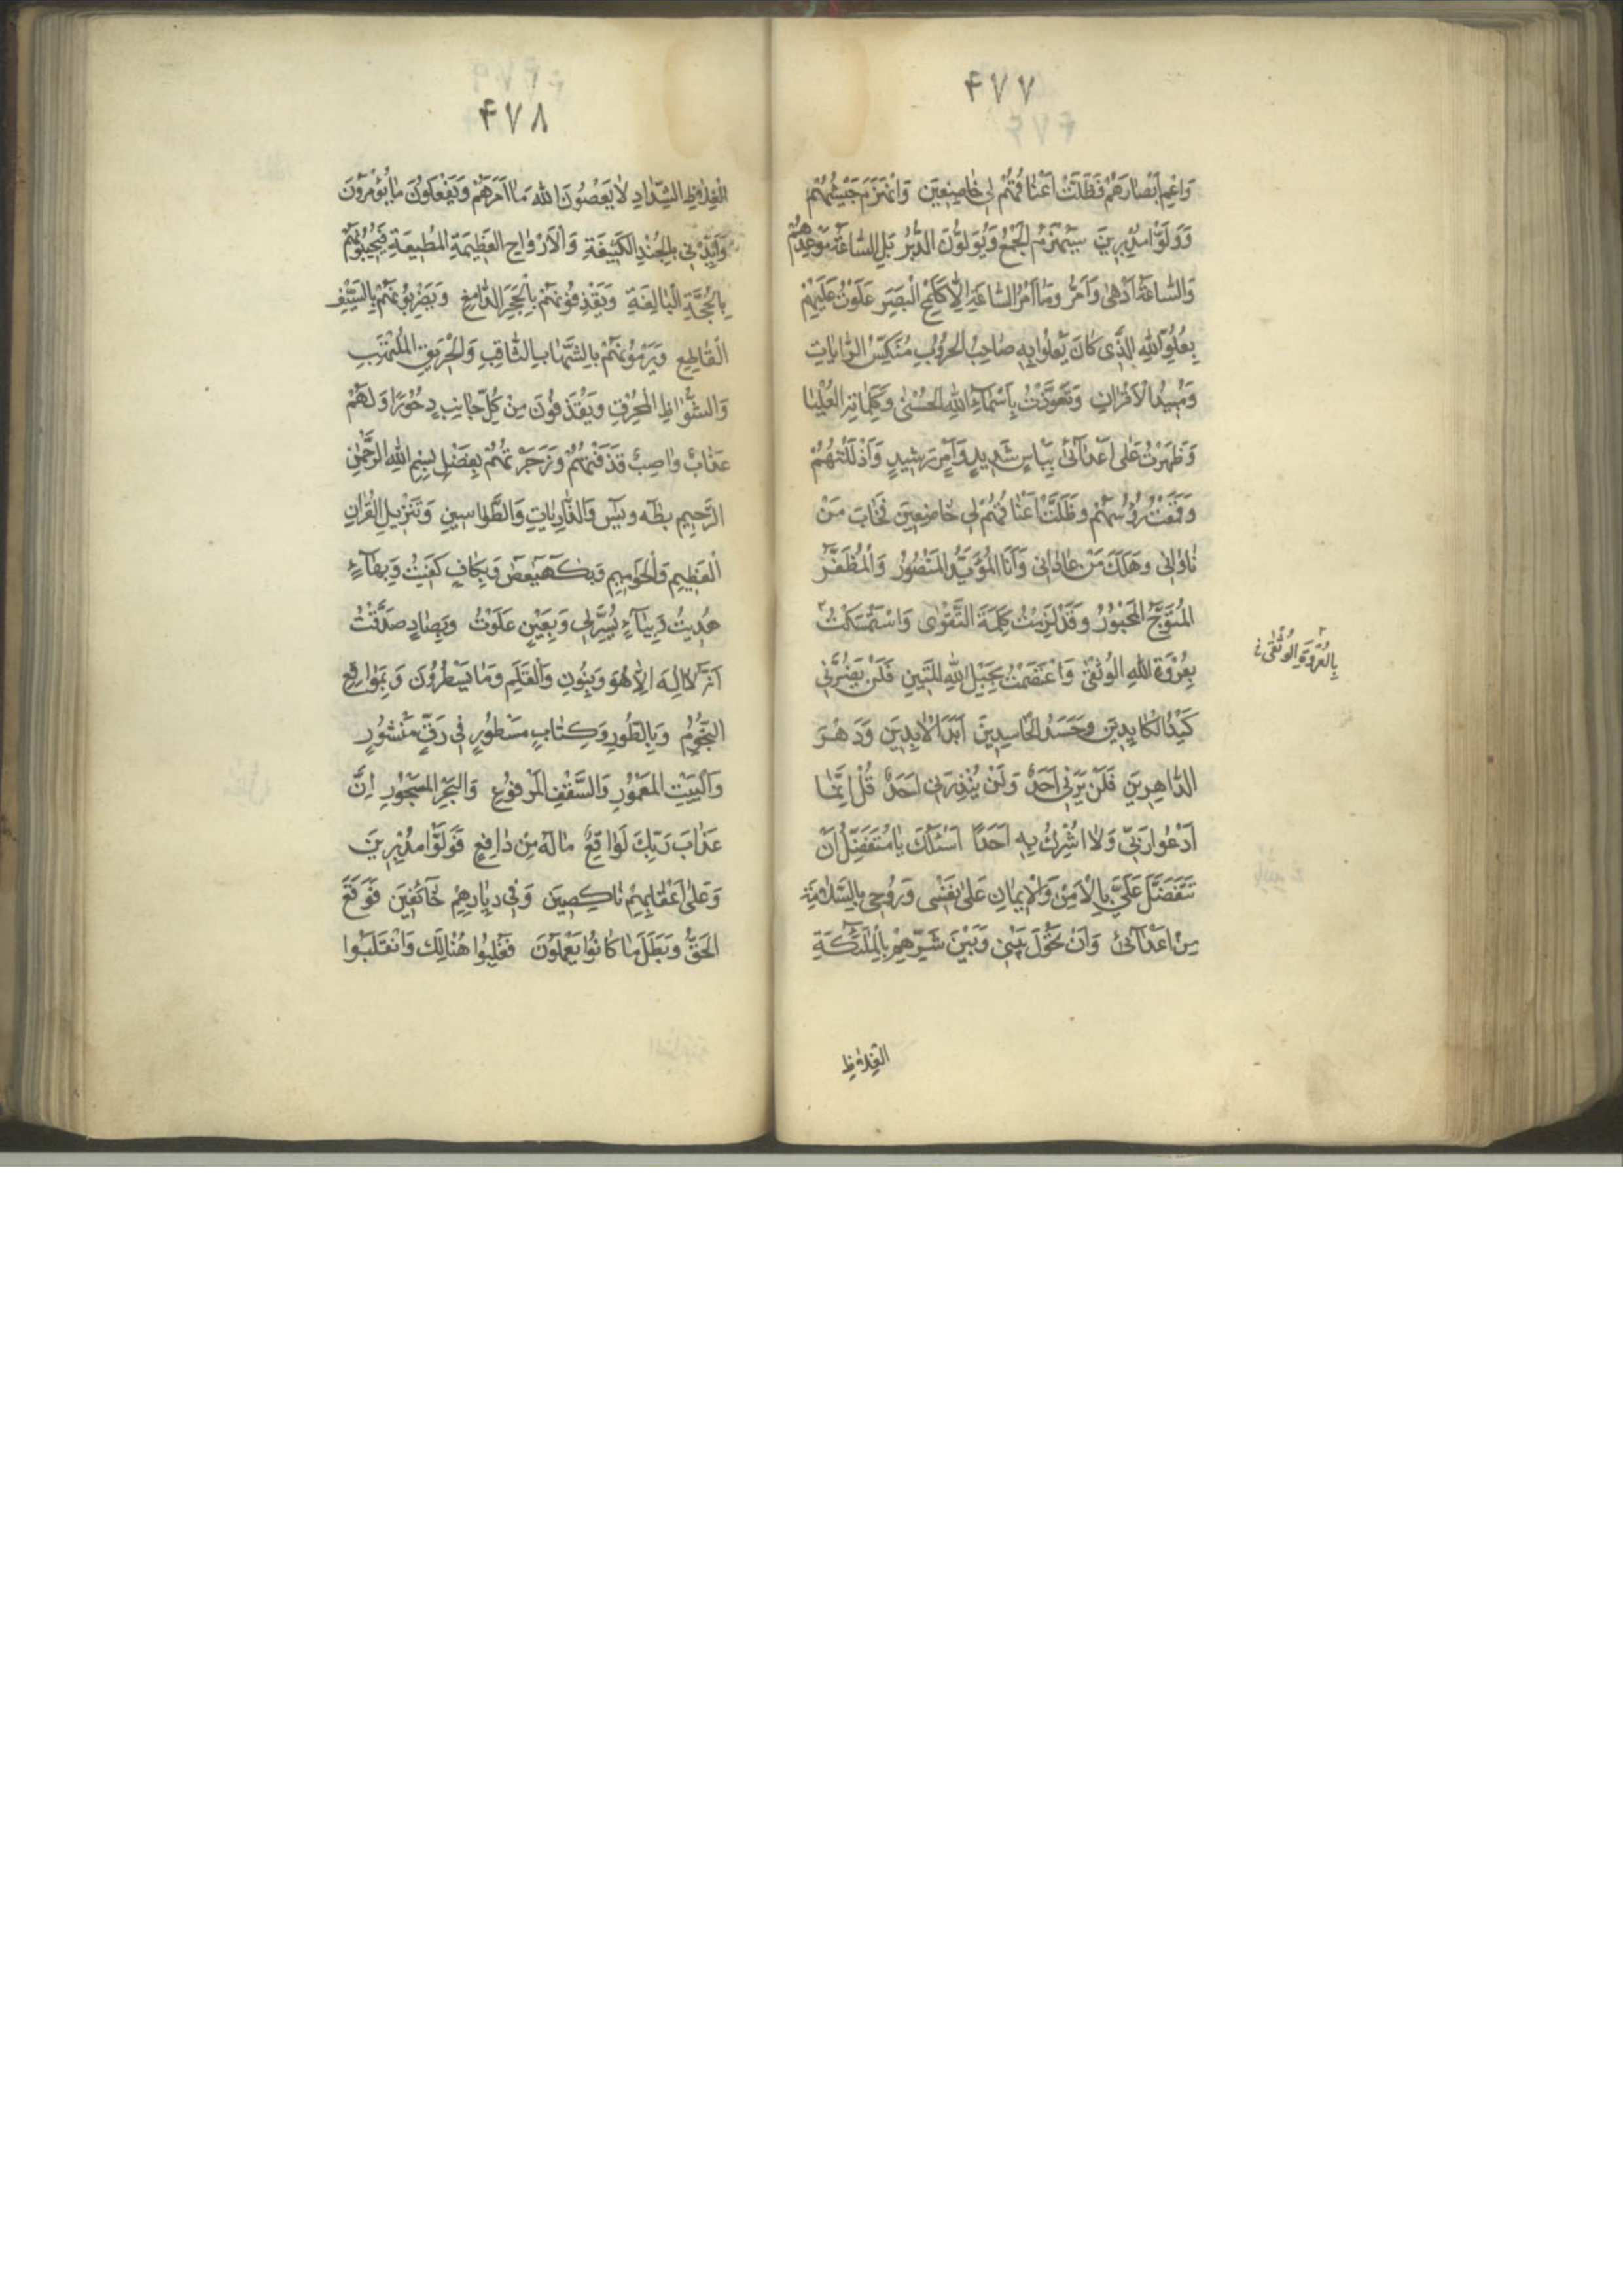 ۴۷۷
وَاعْمِ اَبْصٰارَهُمْ فَظَلَّتْ اَعْنٰاقُهُمْ لِی خٰاضِعِینَ وَانْهَزَمَ جَیْشُهُمْ
وَوَلَّوْا مُدْبِرِینَ سَیُهْزَمُ الْجَمْعُ وَیُوَلُّونَ الدُّبُرَ بَلِ السّٰاعَةُ مَوْعِدُهُمْ
وَالسّٰاعَةُ اَدْهٰی وَاَمَرُّ وَمٰا اَمْرُ السّٰاعَةِ اِلّٰا كَلَمْحِ الْبَصَرِ عَلَوْتُ عَلَیْهِمْ
بِعُلُوِّ اللّٰهِ الَّذی كَانَ یَعْلُوا بِهِ صٰاحِبُ الْحُرُوبِ مُنَكِّسُ الرّٰایٰاتِ
وَمُبِیدُ الْاَقْرٰانِ وَتَعَوَّذْتُ بِاَسْمٰاءِ اللّٰهِ الْحُسْنٰی وَكَلِمٰاتِهِ الْعُلْیٰا
وَظَهَرْتُ عَلٰی اَعْدٰآئی بِبَاْسٍ شَدِیدٍ وَاَمْرٍ رَشِیدٍ وَاَذْلَلْتُهُمْ
وَقَمَعْتُ رُؤُسَهُمْ وَظَلَّتْ اَعْنٰاقُهُمْ لِی خٰاضِعِینَ فَخٰابَ مَنْ
نٰاوٰانی وَهَلَكَ مَنْ عٰادٰانی وَاَنَا الْمُؤَیَّدُ الْمَنْصُورُ وَالْمُظَفَّرُ
الْمُتَوَّجُ الْمَحْبُورُ وَقَدْ لَزِمْتُ كَلِمَةَ التَّقْوٰی وَاسْتَمْسَكْتُ
بِالْعُرْوَةِ الْوُثْقٰی
بِعُرْوَةِ اللّٰهِ الْوُثْقٰی وَاعْتَصَمْتُ بِحَبْلِ اللّٰهِ الْمَتِینِ فَلَنْ یَضُرَّنِی
كَیْدُ الْكٰایِدِینَ وَحَسَدُ الْحٰاسِدِینَ اَبَدَ الْاٰبِدِینَ وَدَهْرَ
الدّٰاهِرِینَ فَلَنْ یَرَنِی اَحَدٌ وَلَنْ یُنْذِرَنِی اَحَدٌ قُلْ اِنَّمٰا
اَدْعُوا رَبِّی وَلٰا اُشْرِكُ بِهِ اَحَدًا اَسْئَلُكَ یٰا مُتَفَضِّلُ اَنْ
تَتَفَضَّلَ عَلَیَّ بِالْاَمْنِ وَالْاِیمٰانِ عَلٰی نَفْسی وَرُوحی بِالسَّلٰامَةِ
مِنْ اَعْدٰآئی وَاَنْ تَحُولَ بَیْنی وَبَیْنَ شَرِّهِمْ بِالْمَلٰٓئِكَةِ
الْغِلٰاظِ
۴۷۸
الْغِلٰاظِ الشِّدٰادِ لٰا یَعْصُونَ اللّٰهَ مٰا اَمَرَهُمْ وَیَفْعَلُونَ مٰا یُؤْمَرُونَ
وَاَیِّدْنی بِالْجُنْدِ الْكَثِیفَةِ وَالْاَرْوٰاحِ الْعَظِیمَةِ الْمُطِیعَةِ فَیُجِیبُونَهُمْ
بِالْحُجَّةِ الْبٰالِغَةِ وَیَقْذِفُونَهُمْ بِالْحَجَرِ الدّٰامِغِ وَیَضْرِبُونَهُمْ بِالسَّیْفِ
الْقٰاطِعِ وَیَرْمُونَهُمْ بِالشَّهٰابِ الثّٰاقِبِ وَالْحَرِیقِ الْمُلْتَهِبِ
وَالشُّوٰاظِ الْمُحْرِقِ وَیُقْذَفُونَ مِنْ كُلِّ جٰانِبٍ دُحُورًا وَلَهُمْ
عَذٰابٌ وٰاصِبٌ قَذَفْتُهُمْ وَزَجَرْتُهُمْ بِفَضْلِ بِسْمِ اللّٰهِ الرَّحْمٰنِ
الرَّحِیمِ بِطٰهٰ وَیٰسٓ وَالذّٰارِیٰاتِ وَالطَّوٰاسِینِ وَتَنْزِیلِ الْقُرْاٰنِ
الْعَظِیمِ وَالْحَوٰامِیمِ وَبِكٓهٰیٰعٓصٓ وَبِكٰافٍ كُفِیتُ وَبِهٰآءٍ
هُدِیتُ وَبِیٰآءٍ یُسِّرَ لِی وَبِعَیْنٍ عَلَوْتُ وَبِصٰادٍ صَدَّقْتُ
اَنَّهُ لٰا اِلٰهَ اِلّٰا هُوَ وَبِنُونٍ وَالْقَلَمِ وَمٰا یَسْطُرُونَ وَبِمَوٰاقِعِ
النُّجُومِ وَبِالطُّورِ وَكِتٰابٍ مَسْطُورٍ فی رَقٍّ مَنْشُورٍ
وَالْبَیْتِ الْمَعْمُورِ وَالسَّقْفِ الْمَرْفُوعِ وَالْبَحْرِ الْمَسْجُورِ اِنَّ
عَذٰابَ رَبِّكَ لَوٰاقِعٌ مٰا لَهُ مِنْ دٰافِعٍ فَوَلَّوْا مُدْبِرِینَ
وَعَلٰی اَعْقٰابِهِمْ نٰاكِصِینَ وَفی دِیٰارِهِمْ خٰآئِفِینَ فَوَقَعَ
الْحَقُّ وَبَطَلَ مٰا كٰانُوا یَعْمَلُونَ فَغُلِبُوا هُنٰالِكَ وَانْقَلَبُوا